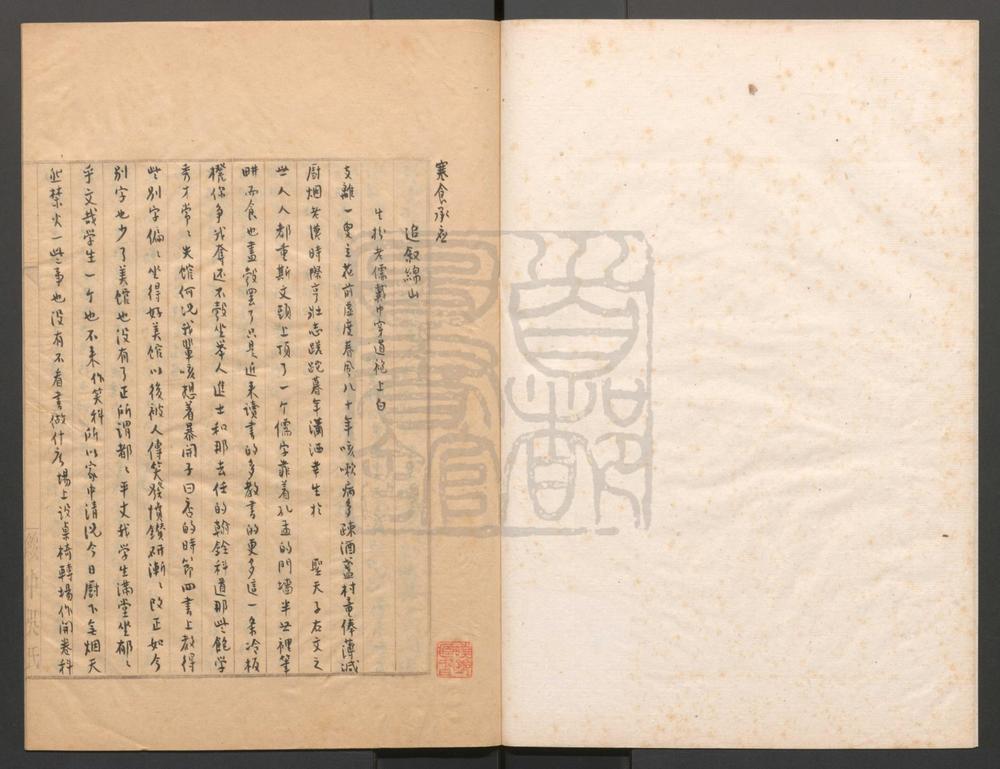 寒食承应
追叙綿山
生扮老儒戴巾穿道袍上白
支離一叟立花前虛度春風八十年咳嗽病多疎酒盞村童俸薄减
厨烟老漢時際亨壯志蹉跎暮年瀟洒幸生於 聖天子右文之
世人人都重斯文頭上頂了一个儒字靠着孔孟的門墻半世裡筆
畊而食也盡彀罷了只是近来读書的多教書的更多這一条冷板
櫈你争我奪还不彀坐举人進士和那去任的翰銓科道那些飽学
秀才常々失館何况我輩咳想着暴開子曰店的時節四書上教得
些别字偏々坐得好美馆以後被人傳笑發憤鑽研漸々改正如今
别字也少了美馆也没有了正所謂都々平丈我学生满堂坐郁々
乎文哉学生一个也不来作笑科所以家中清况今日厨下无烟天
然禁火一些事也没有不看書做什庅場上设桌椅轉場作開卷科